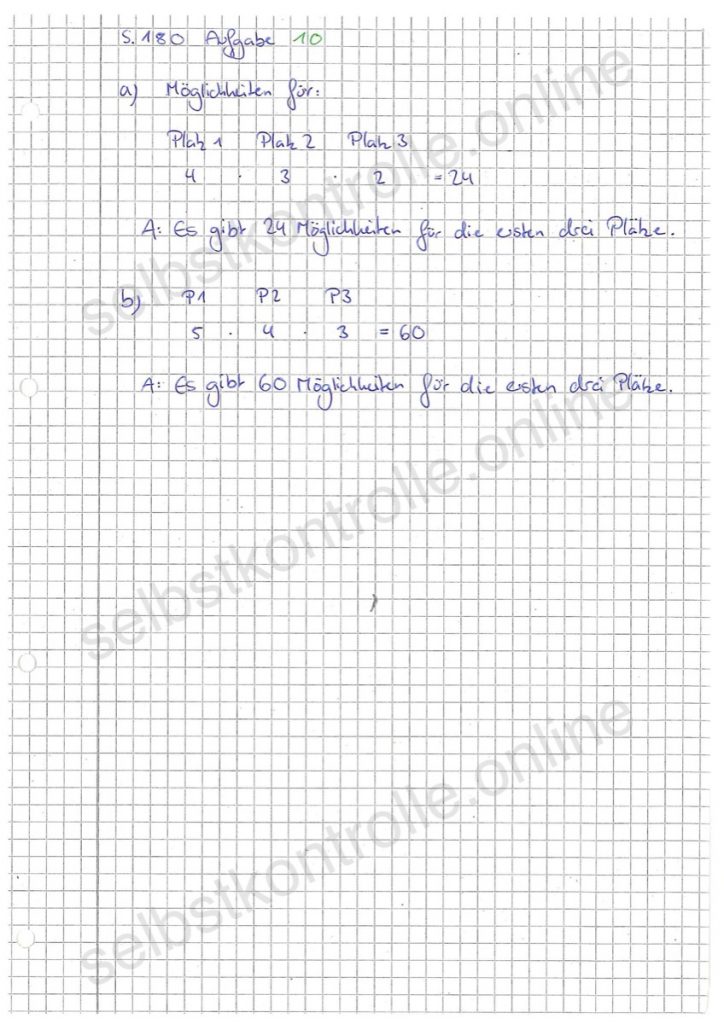 S. 180 Aufgabe 10
a) Möglichkeiten für:
Platz 1 Platz 2 Platz 3
4 · 3 · 2 = 24
A: Es gibt 24 Möglichkeiten für die ersten drei Plätze.
b) P1 P2 P3
5 · 4 · 3 = 60
A: Es gibt 60 Möglichkeiten für die ersten drei Plätze.
selbstkontrolle.online
selbstkontrolle.online
selbstkontrolle.online